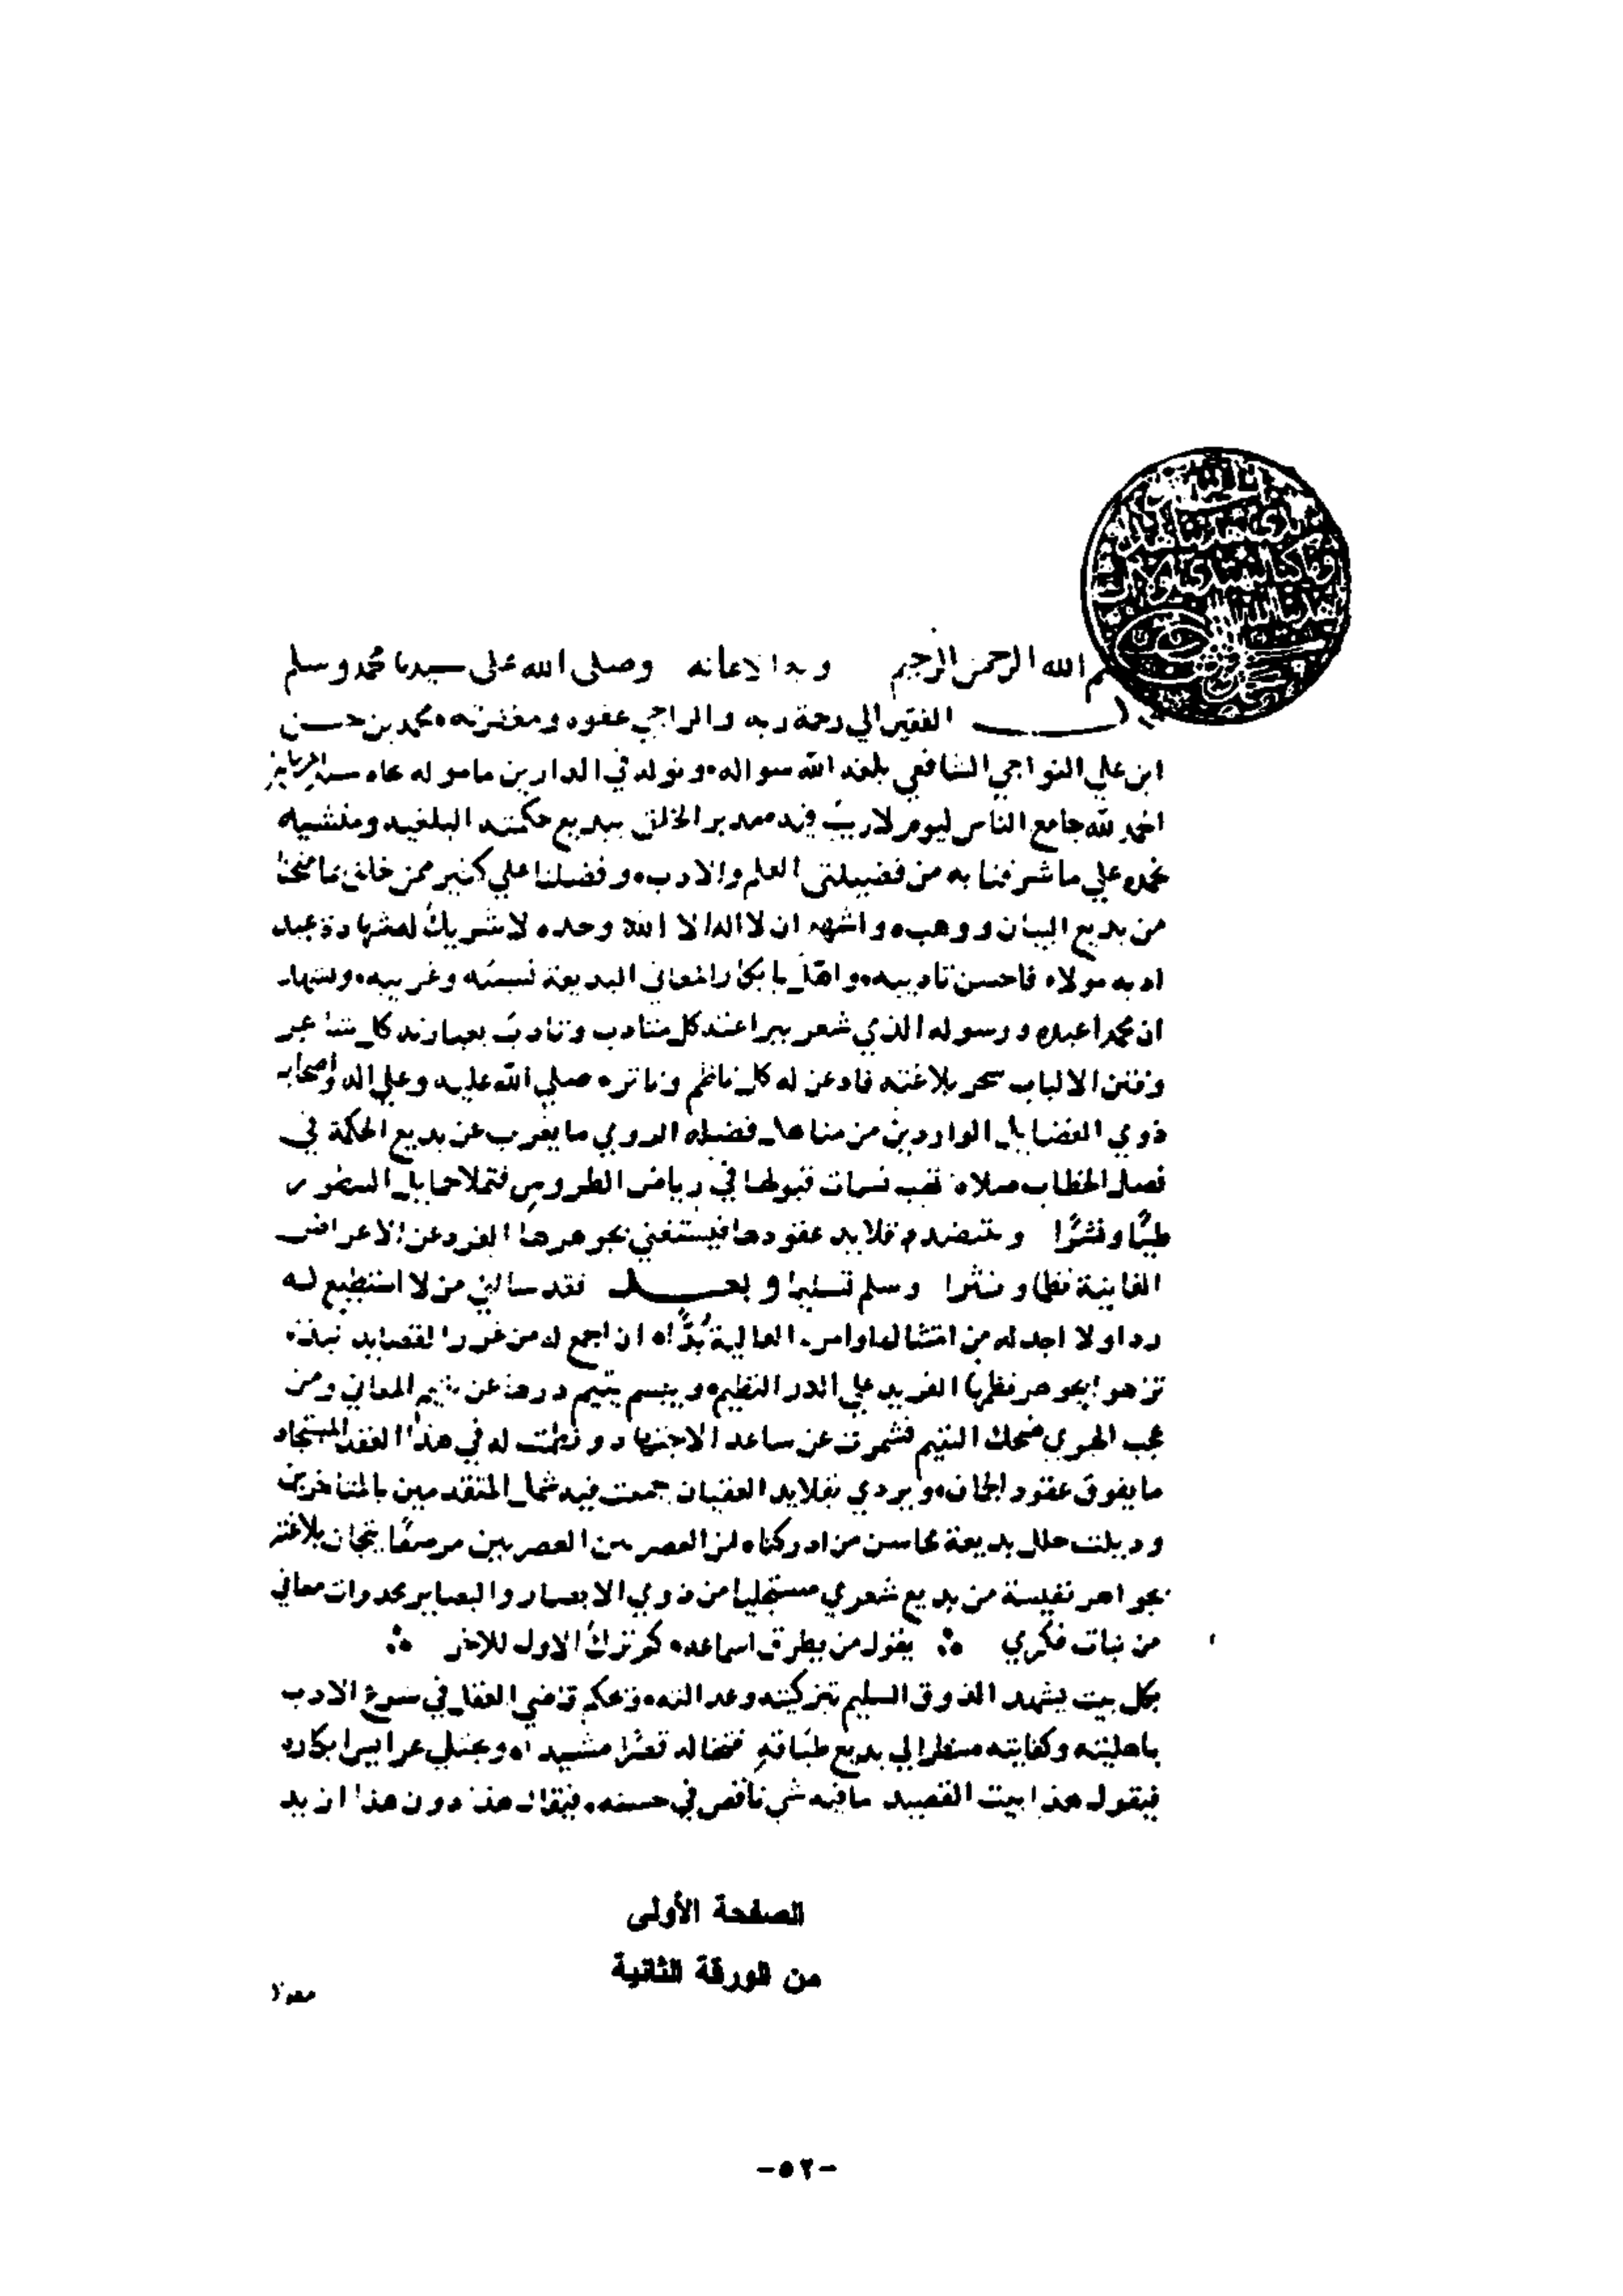 الحمد لله الذي هدانا لهذا
وما كنا لنهتدي لولا ان
هدانا الله
بسم الله الرحمن الرحيم وبه الاعانه وصلى الله على سيدنا محمد وسلم
قال الفقير الي رحمة ربه والراجي عفوه ومغفرته محمد بن حسن
ابن علي النواجي الشافعي بلغه الله سواله ونوله في الدارين ماموله
الحمد لله جامع الناس ليوم لا ريب فيه مدبر الخلق ببديع حكمته البلغيه ومنشيه
نحمده علي ما شرفنا به من فضيلتي العلم والادب وفضلنا علي كثير ممن خلق بما منحنا
من بديع البيان ووهب واشهد ان لا اله الا الله وحده لا شريك له شهادة عبد
ادبه مولاه فاحسن تاديبه واهل بابكار المعاني البديعة نسيبه وغريبه ونشهد
ان محمدا عبده ورسوله الذي شعر ببراعته كل متادب وتادب بعبارته كل شاعر
وفتن الالباب سحر بلاغته فاذعن له كل ناظم وناثر صلي الله عليه وعلي اله واصحابه
ذوي الفضايل الواردين من مناهل فضله الروي ما يغرب عن بديع الحكمة في
فصل الخطاب صلاة تهب نسمات قبولها في رياض الطروس فتملا حمايل السطور
طيبا ونشرا وتتنضد قلايد عقودها فيستغني بجوهرها الفرد عن الاعراض
الفانية نظما ونثرا وسلم تسليما وبعد فقد سالني من لا استطيع له
ردا ولا اجد له من امتثال اوامره العالية بدا ان اجمع له من غرر القصايد نبذة
تزهو بجوهر نظمها الفريد علي الدر النظيم ويبسم يتيم درها عن المعاني ومن
عجب الهوي ضحك اليتيم فشمرت عن ساعد الاجتهاد ونظمت له في هذا العقد المستجاد
ما يفوق عقود الجمان ويزدي بقلايد العقيان جمعت فيه شمل المتقدمين بالمتاخرين
وذيلت حلل بديعة محاسن من ادركناه من العصريين مرصعا بتيجان بلاغته
بجواهر نفيسة من بديع شعري مستجليا من ذوي الابصار والبصاير مخدرات معاني
من نبات فكري يقول من يطرق اسماعه كم ترك الاول للاخر
بكل بيت يشهد الذوق السليم بتزكيته وعدالته وحكم قاضي العقل في شرع الادب
باهليته وكفايته منظرا الي بديع طباقه فتخاله قصرا مشيدا وتجتلي عرايس ابكاره
فيقول هذا بيت القصيد ما فيه شي ناقص في حسنه فيقال هذا دون هذا ازيد
الصفحة الأولى
من الورقة الثانية
-٥٢-